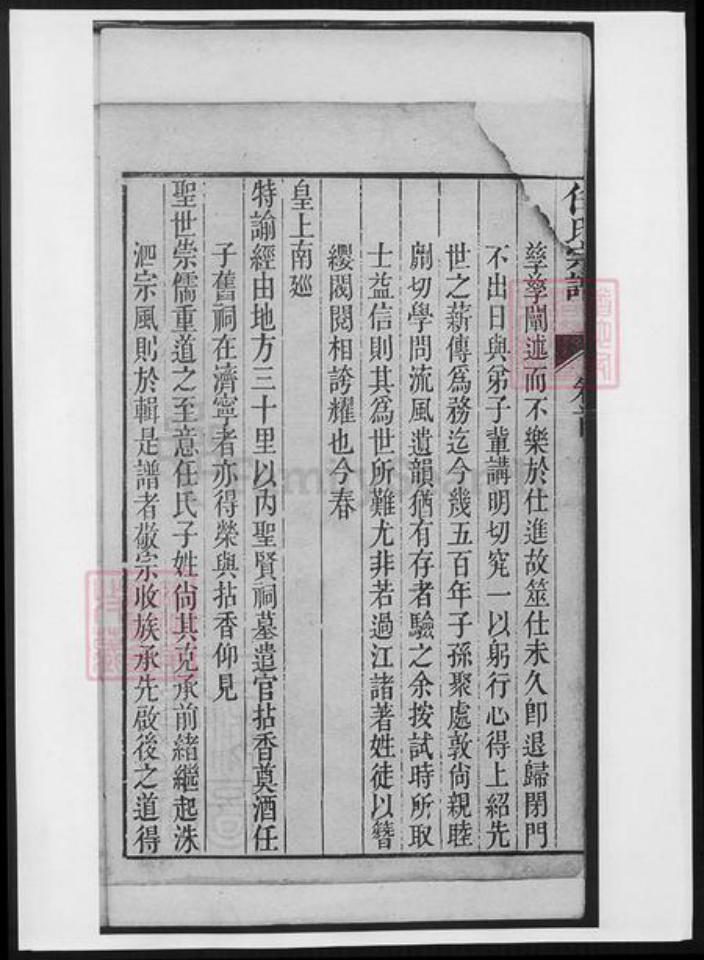 任氏宗譜 卷首
孳孳闡述而不樂於仕進故筮仕未久卽退歸閉門
不出日與弟子輩講明切究一以躬行心得上紹先
世之薪傳爲務迄今幾五百年子孫聚處敦尙親睦
剬切學問流風遺韻猶有存者驗之余按試時所取
士益信則其爲世所難尤非若過江諸著姓徒以簪
纓閥閱相誇耀也今春
皇上南廵
特諭經由地方三十里以內聖賢祠墓遣官拈香奠酒任
子舊祠在濟寧者亦得榮與拈香仰見
聖世崇儒重道之至意任氏子姓尙其克承前緒繼起洙
泗宗風則於輯是譜者敬宗收族承先啟後之道得